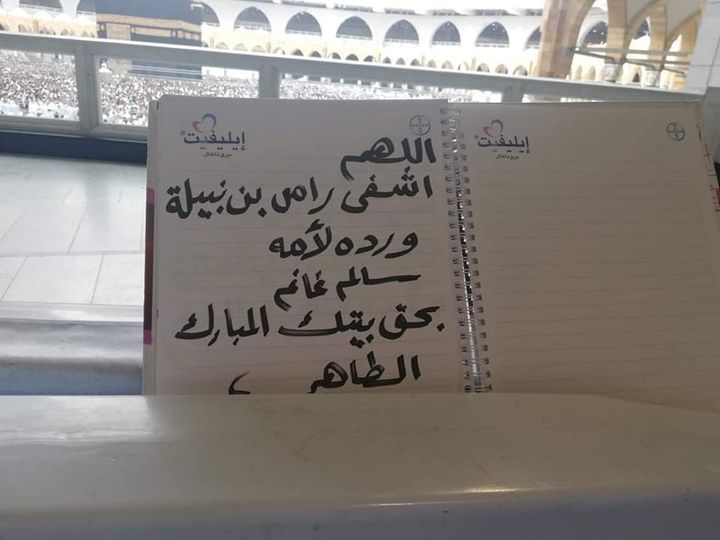 إيليفيت إيليفيت
بروناتال بروناتال
اللهم
اشفى بن نبيلة
ورده لأمه
سالم غانم
بحق بيتك المبارك
الطاهر